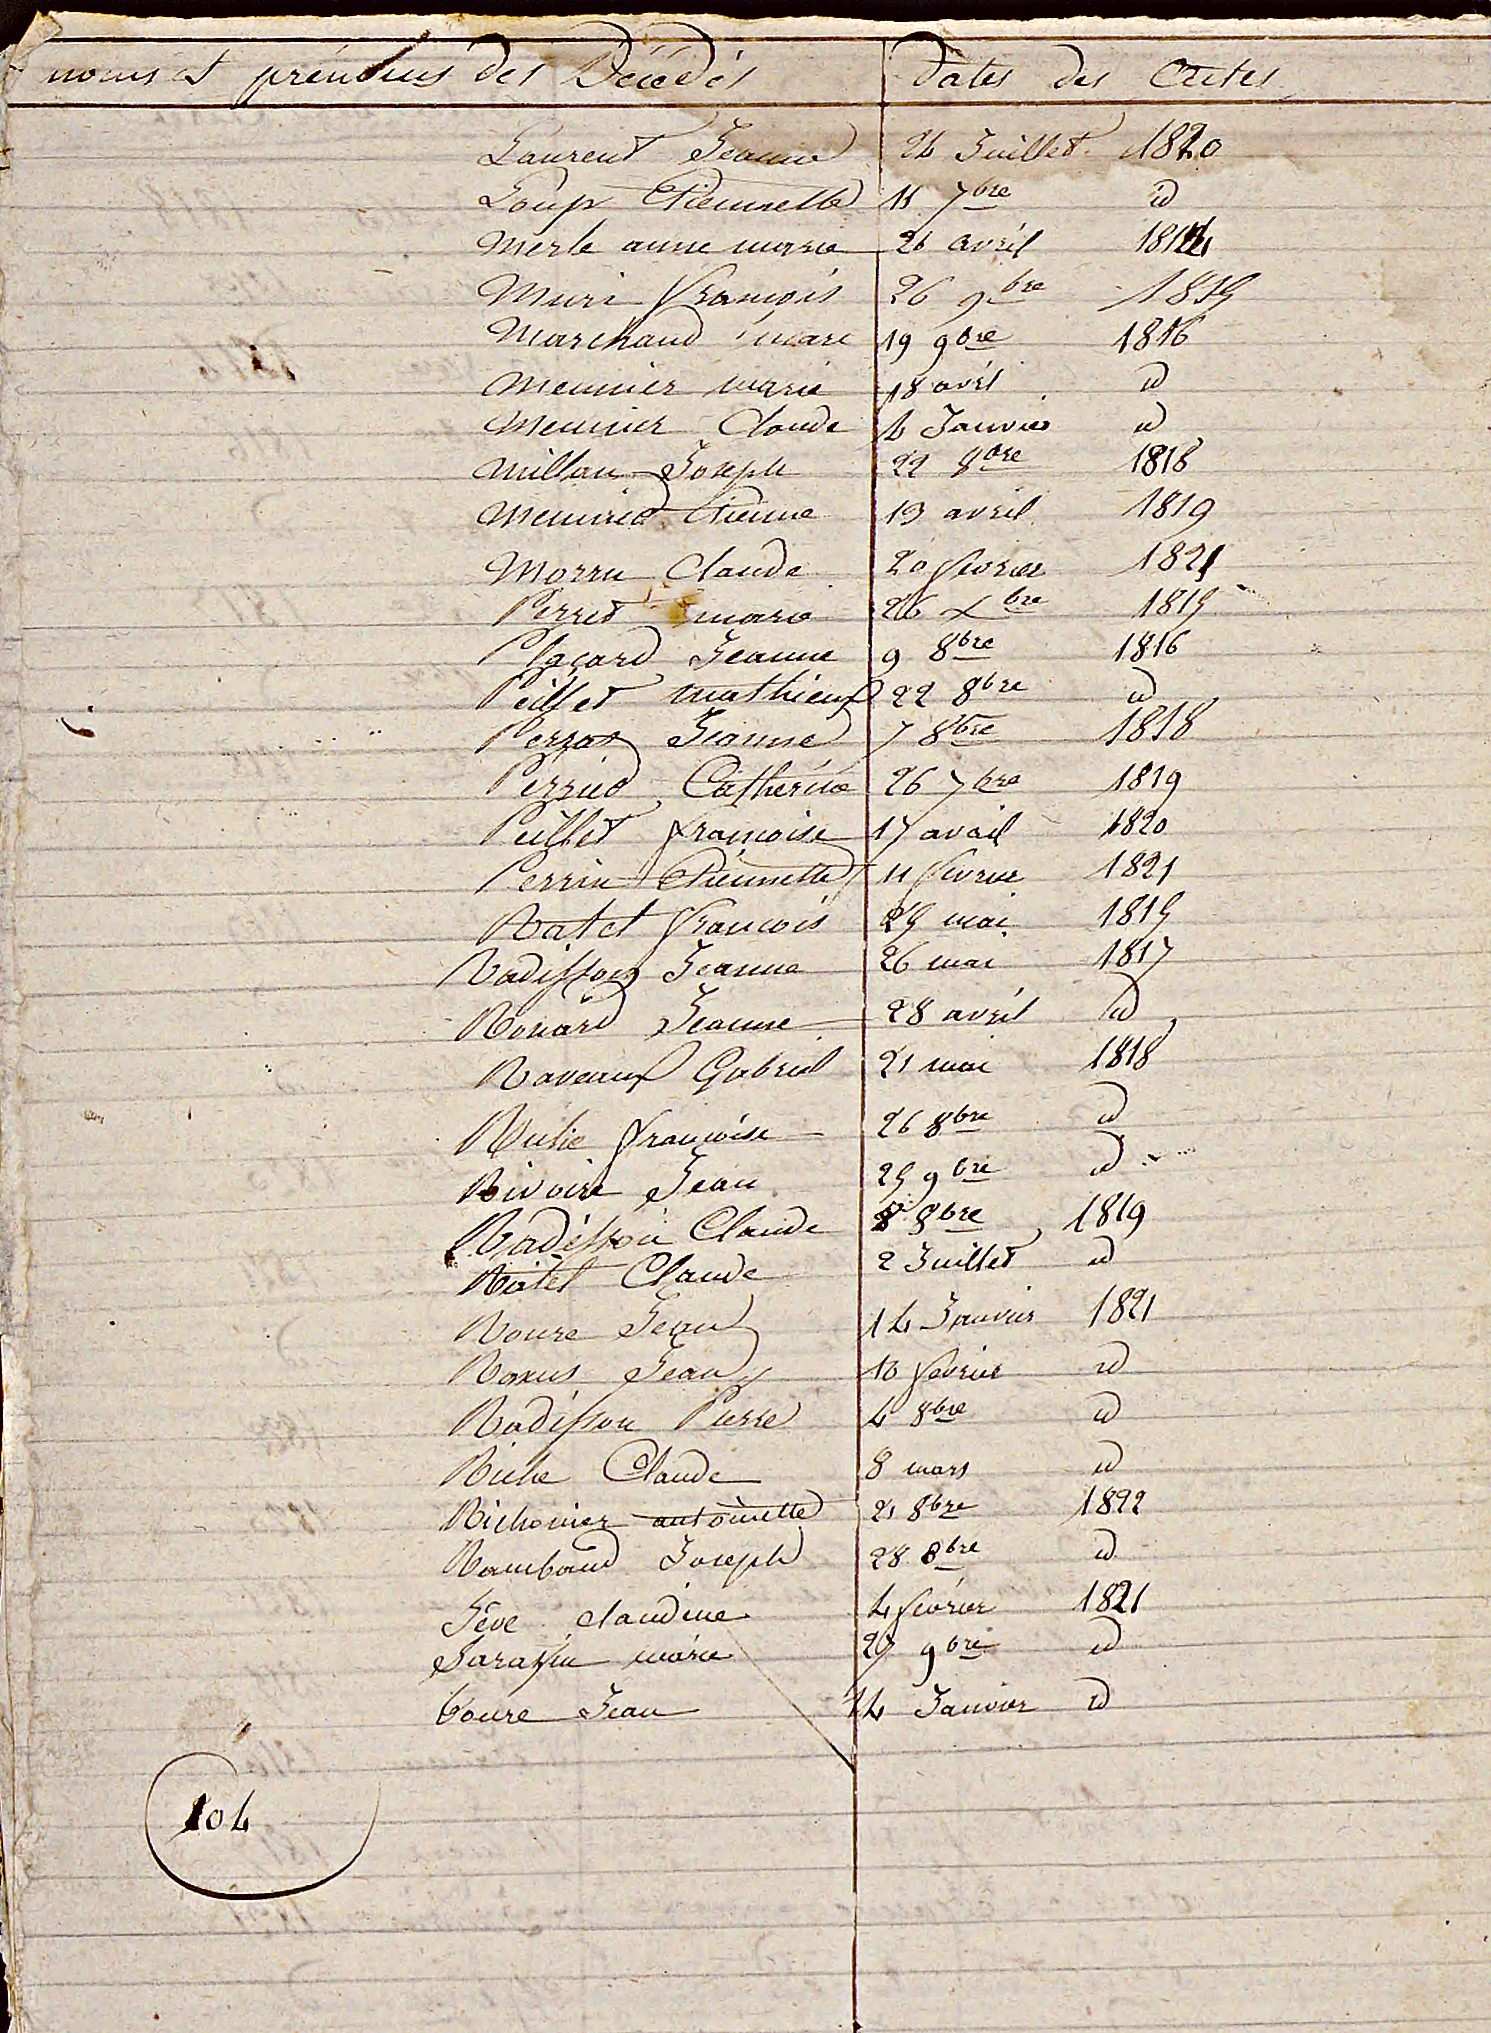 noms et prénoms des Décédés dates des Actes
Laurent Jeanne 24 Juillet 1820
Loup Pierrette 11 7bre id
Merle anne marie 26 avril 1814
Muri françois 26 9bre 1815
Marchand marie 19 9bre 1816
Meunier marie 18 avril id
Meunier Claude 4 Janvier id
Millan Joseph 22 8bre 1818
Meunier Pierre 13 avril 1819
Morru Claude 20 fevrier 1821
Perret marie 26 Xbre 1815
Plaçard Jeanne 9 8bre 1816
Peillet mathieux 22 8bre id
Perras Jeanne 7 8bre 1818
Perrier Catherine 26 7bre 1819
Peillet françoise 17 avril 1820
Perrin Pierrette 11 fevrier 1821
Ratet françois 25 mai 1815
Radisson Jeanne 26 mai 1817
Rouard Jeanne 28 avril id
Raveaux Gabriel 21 mai 1818
Riche françoise 26 8bre id
Rivoire Jean 25 9bre id
Radisson Claude 8 8bre 1819
Ratet Claude 2 Juillet id
Roure Jean 14 Janvier 1821
Jean 10 fevrier id
Radisson Pierre 4 8bre id
Riche Claude 8 mars id
Richonier antoinette 21 8bre 1822
Rambaud Joseph 28 8bre id
Sève claudine 4 fevrier 1821
Sarasin marie 27 9bre id
Joure Jean 14 Janvier id
104